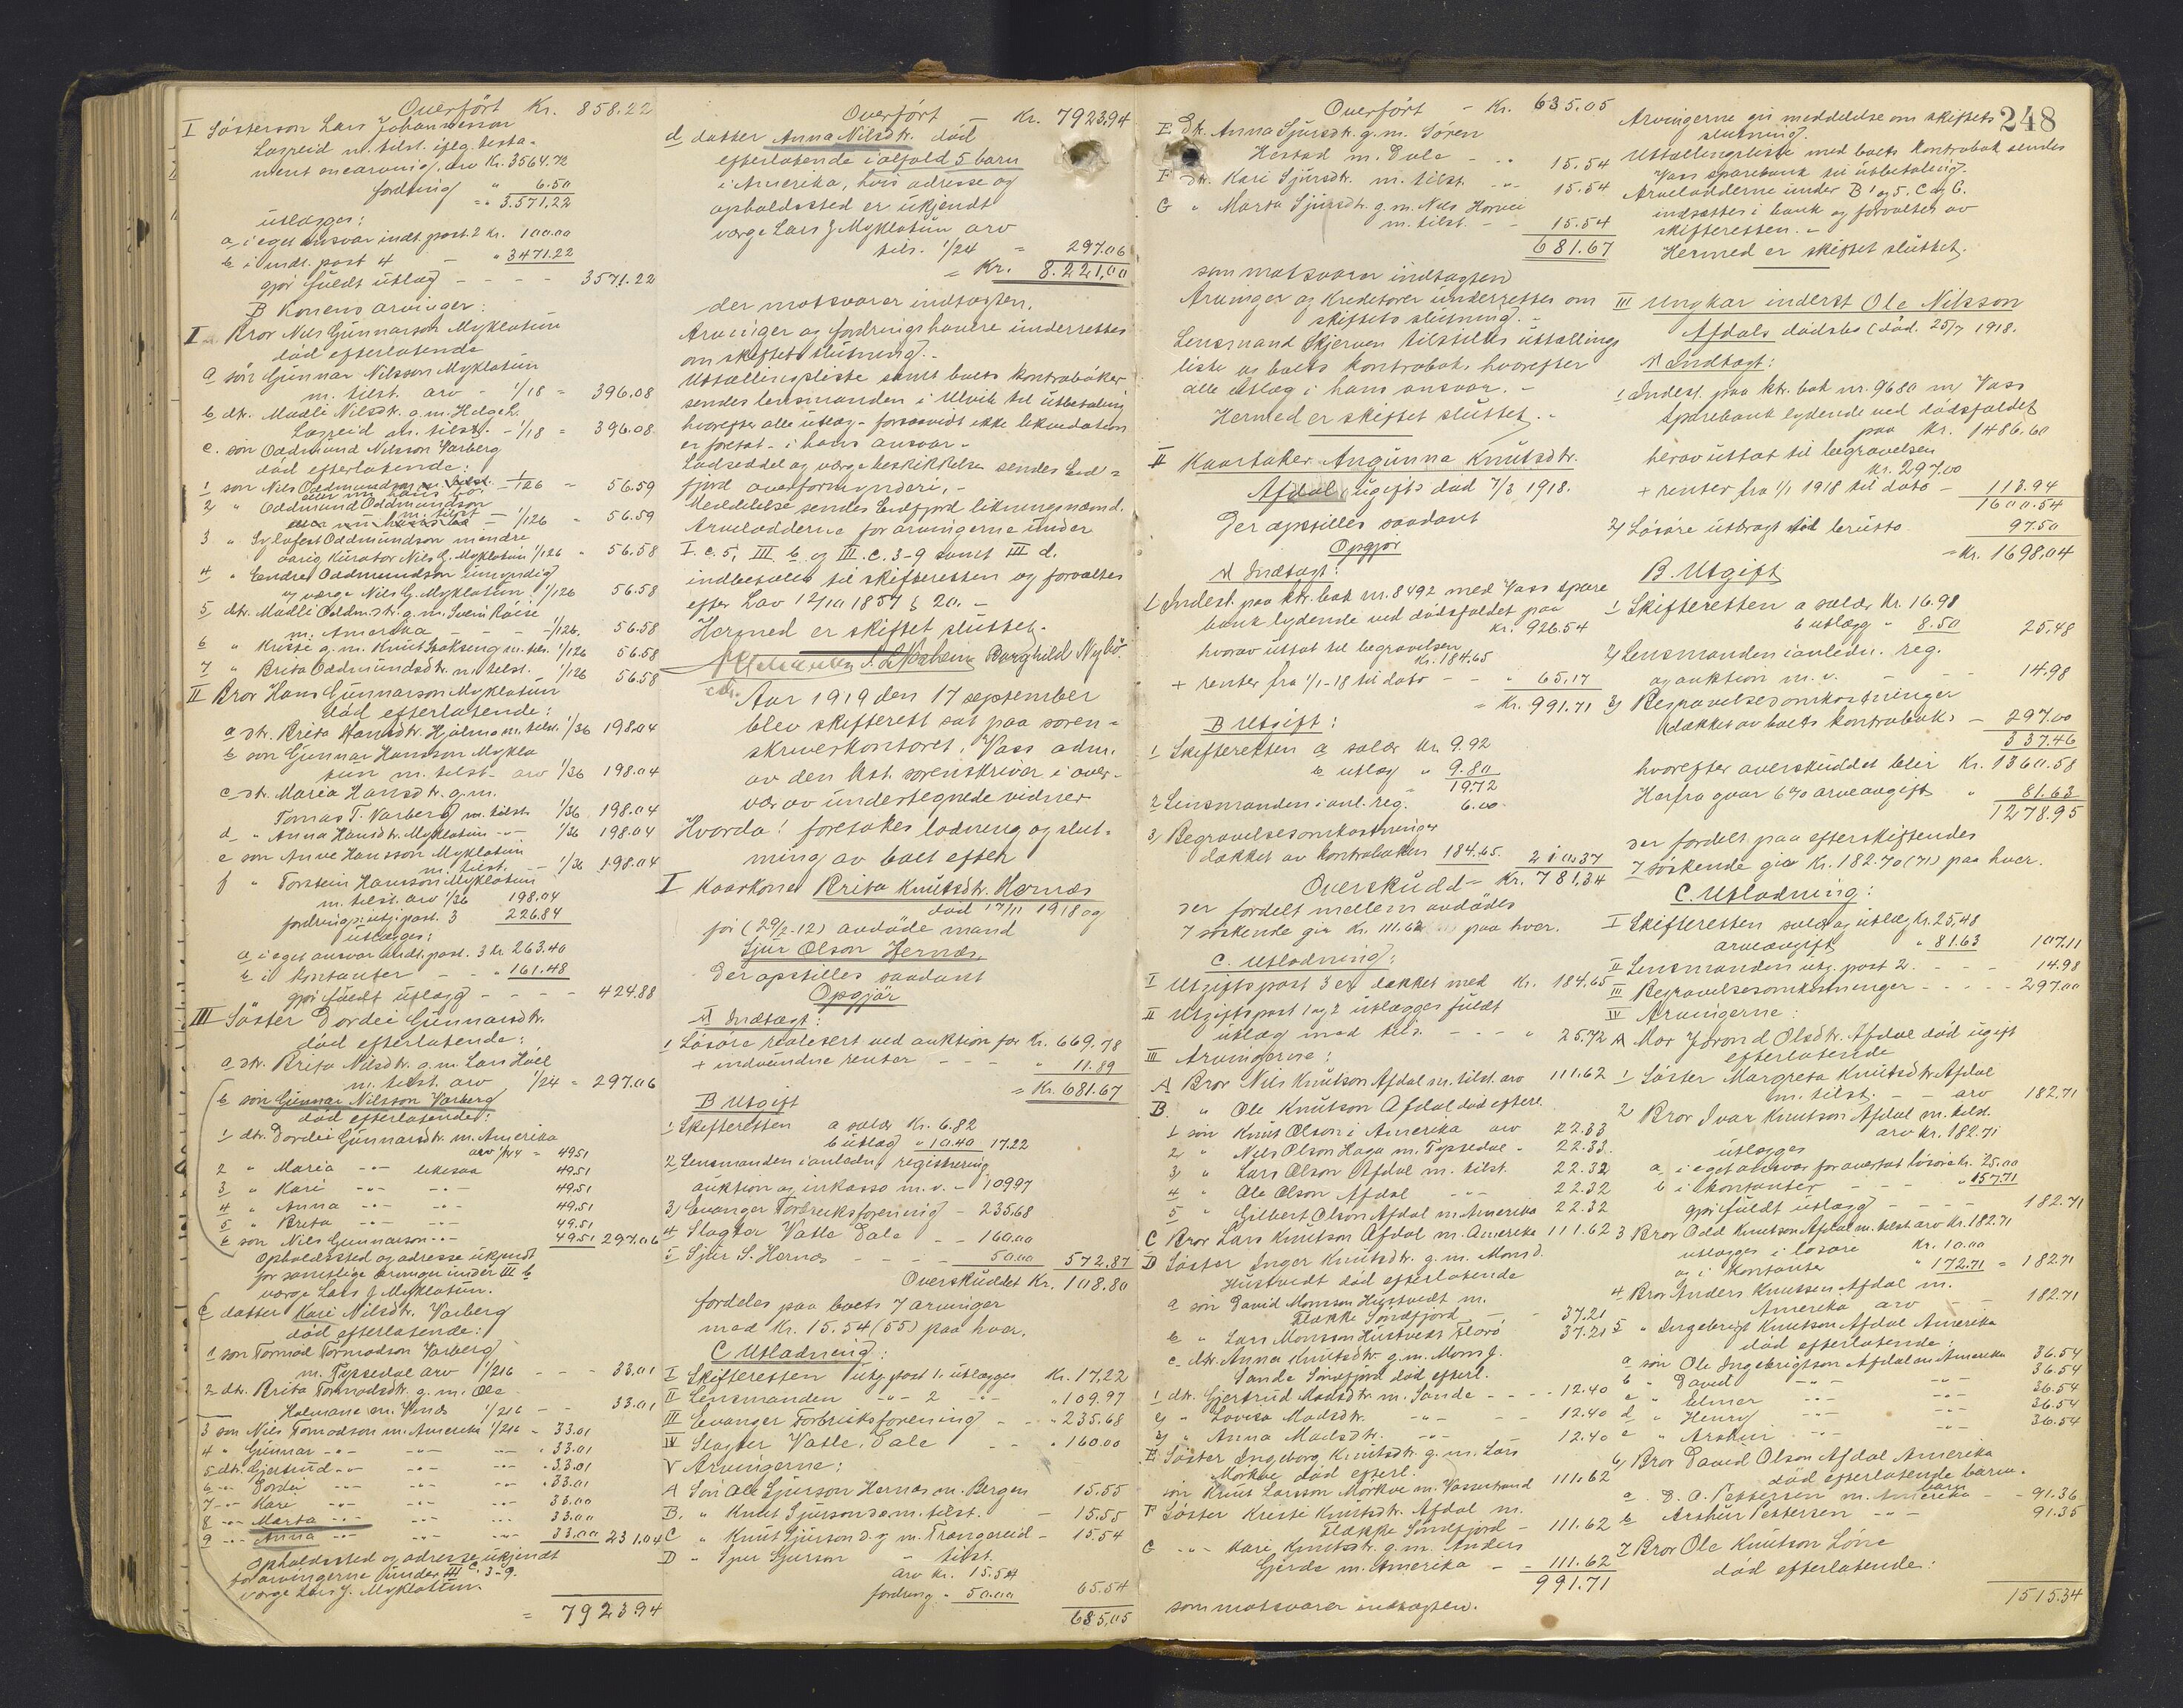 Overført Kr. 858.22
I Søsterson Lars Johannesson
Lazpeid m. tilst. iflg. testa-
ment enearving, arv Kr. 3564.72
fordring " 6.50
= " 3.571,22
utlægges:
a i eget ansvar indt. post. 2 Kr. 100.00
b i indt. post 4 - " 3471.22
gjør fuldt utlæg - - - - 3571.22
B Konens arvinger:
I Bror Nils Gunnarson Myklatun
død efterlatende
a søn Gunnar Nilsson Myklatun
m. tilst. arv - 1/18 = 396.08
b dtr. Madli Nilsdtr. g.m. Helge L.
Lazpeid m. tilst. - 1/18 = 396.08
c. søn Oddmund Nilsson Varberg
død efterlatende:
1 søn Nils Oddmundson m. tilst. - 1/126 = 56.59
2 " Oddmund Oddmundson
m. tilst - 1/126 " 56.59
3 " Sylvfest Oddmundson mindre
aarig Kurator Nils G. Myklatun 1/126 " 56.58
4 " Endre Oddmundson umyndig
værge Nils G. Myklatun 1/126 56.58
5 dtr. Madli Oddm.dtr. g.m. Svein Røise
m. Amerika - - - 1/126. 56.58
6 " Kristi g.m. Knut m. tils. 1/126 56.58
7 " Brita Oddmundsdtr. m. tilst. 1/126 56.58
II Bror Hans Gunnarson Myklatun
død efterlatende:
a dtr. Brita Hansdtr. Hjølmo m. tilst. 1/36 198.04
b søn Gunnar Hansson Mykla
tun m. tilst. arv 1/36 198.04
c dtr. Maria Hansdtr. g.m.
Tomas T. Varberg m. tilst. 1/36 198.04
d " Anna Hansdtr. Myklatun -"- 1/36 198.04
e søn Arne Hansson Myklatun
m. tilst. - 1/36 198.04
f " Torstein Hansson Myklatun
m. tilst. arv 1/36 198.04
fordring: utg. post. 3 226.84
utlægges:
a i eget ansvar indt. post. 3 kr 263.40
b i kontanter - - " 161.48
gjør fuldt utlægg - - - - 424.88
III Søster Dordei Gunnarsdtr.
død efterlatende:
a dtr. Brita Nilsdtr. g.m. Lars
m. tilst. arv 1/24 = 297.06
b søn Gunnar Nilsson Varberg
død efterlatende:
1 dtr. Dordei Gunnarsdtr. m. Amerika
arv 1/144 = 49.51
2 " Maria -"- likesaa 49.51
3 " Kari -"- -"- 49.51
4 " Anna -"- -"- 49.51
5 " Brita -"- -"- 49.51
6 søn Nils Gunnarson -"- 49.51 297.06
Opholdssted og adresse ukjendt
for samtlige arvinger under III b
værge Lars J. Myklatun.
c datter Kari Nilsdtr. Varberg
død efterlatende:
1 søn Tormod Tormodson Varberg
m. Tyssedal arv 1/216 - - 33.01
2 dtr. Brita Tormodsdtr. g.m. Ola
Holmane m. 1/216 - - 33.01
3 søn Nils Tormodson m. Amerika 1/216 - 33.01
4 " Gunnar -"- -"- -"- " 33.01
5 dtr. Gjertrud -"- -"- -"- " 33.01
6 -"- Dordei -"- -"- -"- " 33.01
7 -"- Kari -"- -"- -"- 33.00
8 -"- Marta -"- -"- -"- 33.00
9 -"- Anna -"- -"- -"- 33.00 231.04
Opholdssted og adresse ukjendt
for arvingerne under III c. 3-9.
værge Lars J. Myklatun.
= 7923.94
Overført - Kr. 7923.94
d datter Anna Nilsdtr. død
efterlatende ialfald 5 barn
i Amerika, hvis adresse og
opholdssted er ukjendt
værge Lars J. Myklatun arv
tils. 1/24 = 297.06
= Kr. 8.221,00
der motsvarer indtægten.
Arvinger og fordringshavere underrettes
om skiftets slutning. -
Utfællingsliste samt boets kontrabøker
sendes lensmanden i Ulvik til utbetaling
hvorefter alle utlæg - forsaavidt ikke likvidation
er foretat - i hans ansvar -
Lodseddel og værgebeskikkelse sendes Eid-
fjord overformynderi. -
Meddelelse sendes Eidfjord likningsnæmd.
Arvelodderne for arvingerne under
I. c. 5, III. b og III. c. 3-9 samt III d.
indbetales til skifteretten og forvaltes
efter Lov 12/10 1857 § 20. -
Hermed er skiftet sluttet.
Borghild Nybø
Aar 1919 den 17 september
blev skifterett sat paa soren-
skriverkontoret, Vass adm.
av den kst. sorenskriver i over-
vær av undertegnede vidner
Hvorda: foretakes lodning og slut-
ning av boet efter
I Kaarkone Brita Knutsdtr. Hernæs
død 17/11 1918 og
før (29/2-12) avdøde mand
Sjur Olson Hernæs.
Der opstilles saadant
Opgjør
A Indtægt:
1 Løsøre realisert ved auktion for Kr. 669.78
+ indvundne renter - - - " 11.89
= Kr. 681.67
B Utgift
1 Skifteretten a salær Kr. 6.82
b utlæg " 10.40 17.22
2 Lensmanden i anledn. registrering,
auktion og inkasso m.v. - 109.97
3) Evanger Forbruksforening - 235.68
4 Slagter Vatle Dale - - 160.00
5 Sjur S. Hernæs - - 50.00 572.87
Overskuddet Kr. 108.80
fordeles paa boets 7 arvinger
med Kr. 15.54 (55) paa hver.
C Utlodning:
I Skifteretten utg. post 1. utlægges Kr. 17,22
II Lensmanden -"- 2 -"- " 109.97
III Evanger Forbruksforening - - " 235.68
IV Slagter Vatle, Dale - - " 160.00
V Arvingerne:
A Søn Ole Sjurson Hernæs m. Bergen 15.55
B. " Knut Sjurson d.e. m. tilst. - 15.55
C " Knut Sjurson d.y. m. Trængereid - 15.54
D " Sjur Sjurson - tilst.
arv Kr. 15.54
fordring - 50.00 65.54
635,05
248
Overført - Kr. 635.05
E Dtr. Anna Sjursdtr. g.m. Søren
Herstad m. Dale - " 15.54
F dtr. Kari Sjursdtr. m. tilst. -"- 15.54
G " Marta Sjursdtr. g.m. Nils Horvei
m. tilst. - - 15.54
681.67
som motsvarer indtægten
Arvinger og kreditorer underrettes om
skiftets slutning. -
Lensmand Skjerven tilstilles utfællings
liste og boets kontrabok, hvorefter
alle utlæg i hans ansvar. -
Hermed er skiftet sluttet. -
II Kaartaker Angunna Knutsdtr.
Afdal ugift død 7/3 1918.
Der opstilles saadant
Opgjør
A Indtægt:
1 Indest. paa ktr. bok nr. 8492 med Vass spare
bank lydende ved dødsfaldet paa
Kr. 926.54
hvorav uttat til begravelsen
Kr. 184.65
+ renter fra 1/1-18 til dato - - " 65.17
= Kr. 991.71
B Utgift:
1 Skifteretten a salær Kr. 9.92
b utlæg " 9.80
19.72
2 Lensmanden i anl. reg. 6.00
3) Begravelsesomkostninger
dækket av kontraboken 184.65. 210.37
Overskudd = Kr. 781,34
der fordelt mellem avdødes
7 søskende gir Kr. 111.62 paa hver.
C. Utlodning:
I Utgiftspost 3 er dækket med Kr. 184.65
II Utgiftspost 1 og 2 utlægges fuldt
utlæg med tils. - - - " 25.72
III Arvingerne:
A Bror Nils Knutson Afdal m. tilst. arv 111.62
B. " Ole Knutson Afdal død efterl.
1 søn Knut Olson i Amerika arv 22.33
2, " Nils Olson Haga m. Tyssedal - 22.33.
3, " Lars Olson Afdal m. tilst. 22.32
4 " Ole Olson Afdal -"- 22.32
5 " Gilbert Olson Afdal m. Amerika 22.32
C Bror Lars Knutson Afdal m. Amerika 111.62
D Søster Inger Knutsdtr. g.m. Mons D.
Hustvedt død efterlatende
a søn David Monsson Hustvedt m.
Flække Søndfjord - 37.21
b " Lars Monsson Hustvedt Florø 37.21
c dtr. Anna Knutsdtr. g.m. Mons J.
Sande Søndfjord død efterl.
1 dtr. Gjertrud Madsdtr m. Sande - - - 12.40
2) " Lovisa Madsdtr. -"- - - 12.40
3) " Anna Madsdtr. -"- 12.40
E Søster Ingeborg Knutsdtr. g.m. Lars
Mørkve død efterl.
søn Knut Larsson Mørkve m. Vasserstrand 111.62
F Søster Kristi Knutsdtr. Afdal m.
Flække Søndfjord - 111.62
G -"- Kari Knutsdtr. g.m. Anders
Gjerde m. Amerika - - 111.62
991.71
som motsvarer indtægten.
Arvingerne gis meddelelse om skiftets
slutning.
Utfællingsliste med boets kontrabok sendes
Vass sparebank til utbetaling.
Arvelodderne under B 1 og 5, C og G.
indsættes i bank og forvaltes av
skifteretten. -
Hermed er skiftet sluttet.
III Ungkar inderst Ole Nilsson
Afdals dødsbo (død. 25/7 1918.
A Indtægt:
1 Indest. paa ktr. bok nr. 9680 m/ Vass
Sparebank lydende ved dødsfaldet
paa Kr. 1486.60
herav uttat til begravelsen
Kr. 297.00
+ renter fra 1/1 1918 til dato - 113.94
1600.54
2) Løsøre utbragt brutto 97.50
= Kr. 1698.04
B. Utgift
1 Skifteretten a salær Kr. 16.98
b utlægg " 8.50 25.48
2) Lensmanden i anledn. reg.
og auktion m.v. - - - 14.98
3) Begravelsesomkostninger
dækket av boets kontrabok - 297.00
337.46
hvorefter overskuddet blir Kr. 1360.58
Herfra gaar 6% arveavgift " 81.63
1278.95
der fordelt paa efterskiftendes
7 søskende gir Kr. 182.70 (71) paa hver.
C. Utlodning:
I Skifteretten salær og utlæg Kr. 25,48
arveavgift " 81.63 107.11
II Lensmanden utg. post 2. - - - 14.98
III Begravelsesomkostninger - - - - 297.00
IV Arvingerne:
A Mor Jørond Olsdtr. Afdal død ugift
efterlatende
1 Søster Margreta Knutsdtr Afdal
m. tilst. - - arv 182.71
2 Bror Ivar Knutson Afdal m. tilst.
arv kr. 182.71
utlægges
a i eget ansvar for overtat løsøre kr. 25,00
b i kontanter - - - " 157.71
gjør fuldt utlægg - - - - 182.71
3 Bror Odd Knutson Afdal m. tilst arv Kr. 182.71
utlægges i løsøre Kr. 10.00
og i Kontante " 172.71 = 182.71
4 Bror Anders Knutsen Afdal m.
Amerika arv - - 182.71
5 " Ingebrigt Knutson Afdal Amerika
død efterlatende:
a søn Ole Ingebrigtson Afdal m Amerika 36.54
b " David -"- -"- 36.54
c " Elmer -"- -"- 36.54
d " Henry -"- -"- 36.54
e " Arthur -"- -"- 36.54
6, Bror David Olson Afdal Amerika
død efterlatende barn.
a D. O. Pettersen m. Amerika - - 91.36
b Arthur Pettersen -"- 91.35
7 Bror Ole Knutson Lone
død efterlatende:
1515.34